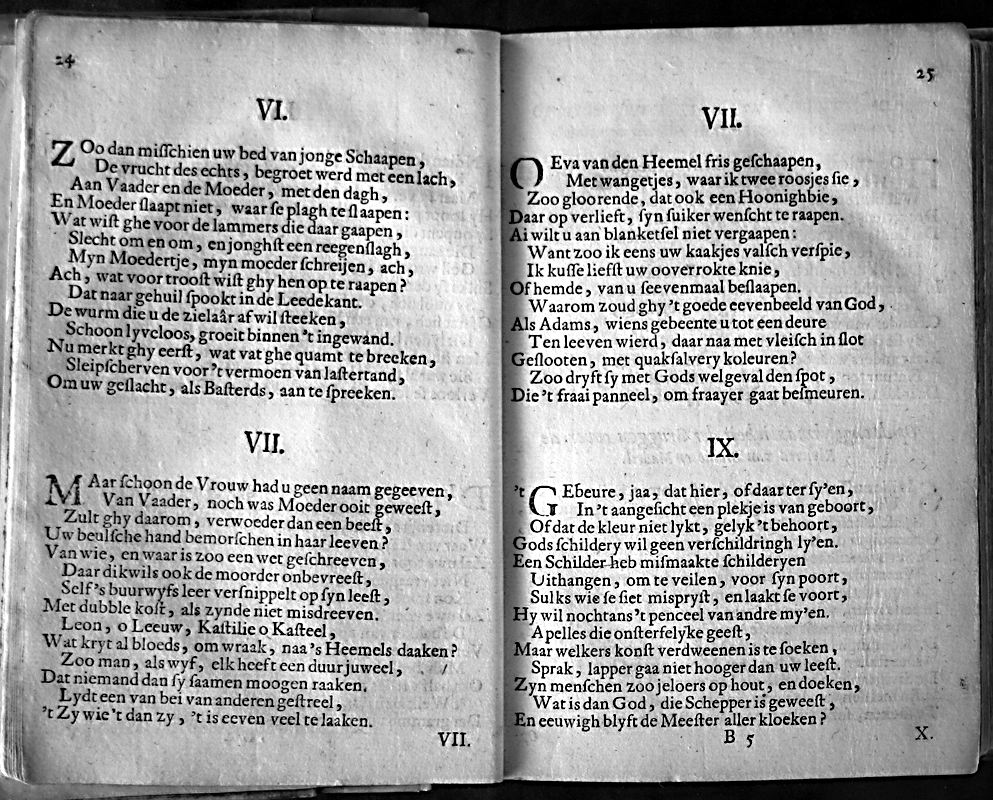 24
VI.
ZOo dan miſſchien uw bed van jonge Schaapen,
De vrucht des echts, begroet werd met een lach,
Aan Vaader en de Moeder, met den dagh,
En Moeder ſlaapt niet, waar ſe plagh te ſlaapen:
Wat wiſt ghe voor de lammers die daar gaapen,
Slecht om en om, en jonghſt een reegenſlagh,
Myn Moedertje, myn moeder ſchreijen, ach,
Ach, wat voor trooſt wiſt ghy hen op te raapen?
Dat naar gehuil ſpookt in de Leedekant.
De wurm die u de zielaâr af wil ſteeken,
Schoon lyveloos, groeit binnen 't ingewand.
Nu merkt ghy eerſt, wat vat ghe quamt te breeken,
Sleipſcherven voor 't vermoen van laſtertand,
Om uw geſlacht, als Baſterds, aan te ſpreeken.
VII.
MAar ſchoon de Vrouw had u geen naam gegeeven,
Van Vaader, noch was Moeder ooit geweeſt,
Zult ghy daarom, verwoeder dan een beeſt,
Uw beulſche hand bemorſchen in haar leeven?
Van wie, en waar is zoo een wet geſchreeven,
Daar dikwils ook de moorder onbevreeſt,
Self 's buurwyfs leer verſnippelt op ſyn leeſt,
Met dubble koſt, als zynde niet misdreeven.
Leon, o Leeuw, Kaſtilie o Kaſteel,
Wat kryt al bloeds, om wraak, naa 's Heemels daaken?
Zoo man, als wyf, elk heeft een duur juweel,
Dat niemand dan ſy ſaamen moogen raaken.
Lydt een van bei van anderen geſtreel,
't Zy wie 't dan zy, 't is eeven veel te laaken.
VII.
25
VII.
O Eva van den Heemel fris geſchaapen,
Met wangetjes, waar ik twee roosjes ſie,
Zoo gloorende, dat ook een Hoonighbie,
Daar op verlieft, ſyn ſuiker wenſcht te raapen.
Ai wilt u aan blanketſel niet vergaapen:
Want zoo ik eens uw kaakjes valſch verſpie,
Ik kuſſe liefſt uw ooverrokte knie,
Of hemde, van u ſeevenmaal beſlaapen.
Waarom zoud ghy 't goede eevenbeeld van God,
Als Adams, wiens gebeente u tot een deure
Ten leeven wierd, daar naa met vleiſch in ſlot
Geſlooten, met quakſalvery koleuren?
Zoo dryft ſy met Gods welgeval den ſpot,
Die 't fraai panneel, om fraayer gaat beſmeuren.
IX.
't GEbeure, jaa, dat hier, of daar ter ſy'en,
In 't aangeſicht een plekje is van geboort,
Of dat de kleur niet lykt, gelyk 't behoort,
Gods ſchildery wil geen verſchildringh ly'en.
Een Schilder heb miſmaakte ſchilderyen
Uithangen, om te veilen, voor ſyn poort,
Sulks wie ſe ſiet mispryſt, en laakt ſe voort,
Hy wil nochtans 't penceel van andre my'en.
Apelles die onſterfelyke geeſt,
Maar welkers konſt verdweenen is te ſoeken,
Sprak, lapper gaa niet hooger dan uw leeſt.
Zyn menſchen zoo jeloers op hout, en doeken,
Wat is dan God, die Schepper is geweeſt,
En eeuwigh blyft de Meeſter aller kloeken?
B 5
X.